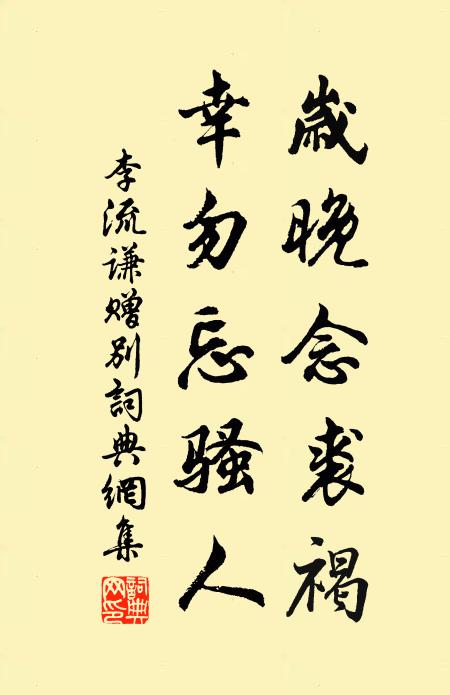 歲晚念裘褐
幸勿忘騷人
李流謙贈別詞典網集
詞典網印